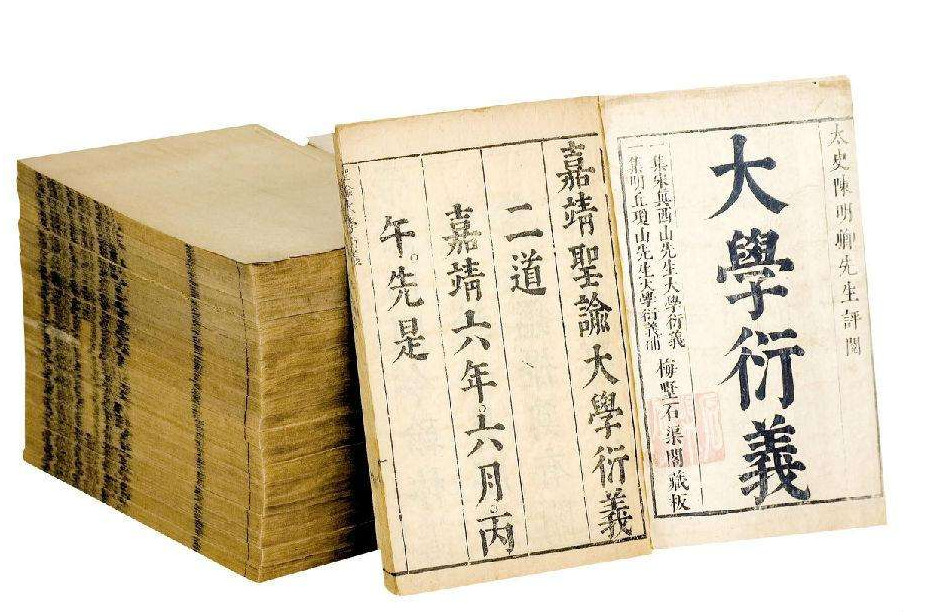 太史陳明卿先生評閱
大學衍義
集宋真西山先生大學衍義
集明丘瓊山先生大學衍義補
梅墅石渠閣藏板
嘉靖聖諭大學衍義
二道
嘉靖六年六月丙
午先是